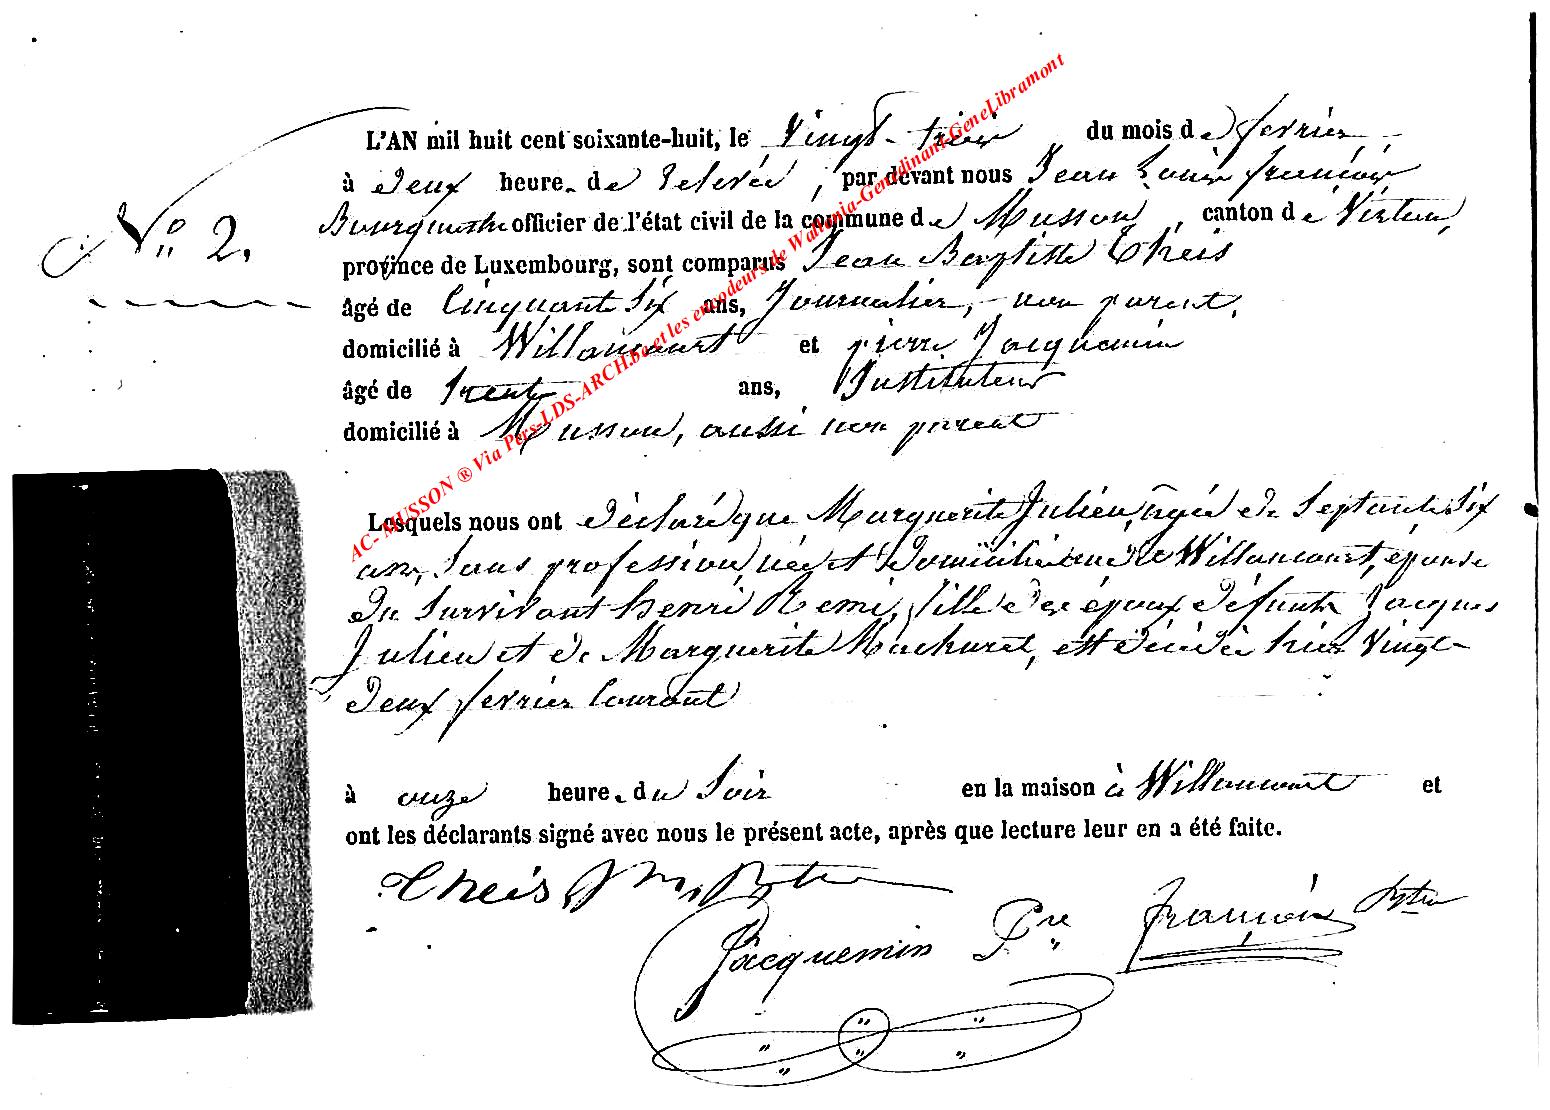 L'AN mil huit cent soixante-huit, le Vingt-trois du mois de février
à deux heure. de relevée, par devant nous Jean Louis françois
Bourgmestre officier de l'état civil de la commune de Musson, canton de Virton,
N° 2.
province de Luxembourg, sont comparus Jean Baptiste Theis
âgé de Cinquante Six ans, Journalier, non parent,
domicilié à Willancourt et pierre Jacquemin
âgé de Trente ans, Instituteur
domicilié à Musson, aussi non parent
Lesquels nous ont déclaré que Marguerite Julien, âgée de Septante Six
ans, Sans profession, née et domiciliée audit Willancourt, épouse
du Survivant henri Remi, fille des époux défunts Jacques
Julien et de Marguerite Machuret, est décédée hier Vingt-
deux février Courant
à onze heure. du Soir en la maison à Willancourt et
ont les déclarants signé avec nous le présent acte, après que lecture leur en a été faite.
Theis
Jacquemin Pre françois
AC- MUSSON ® Via Pers-LDS-ARCH.be et les encodeurs de Wallonia-Genedinant-GeneLibramont